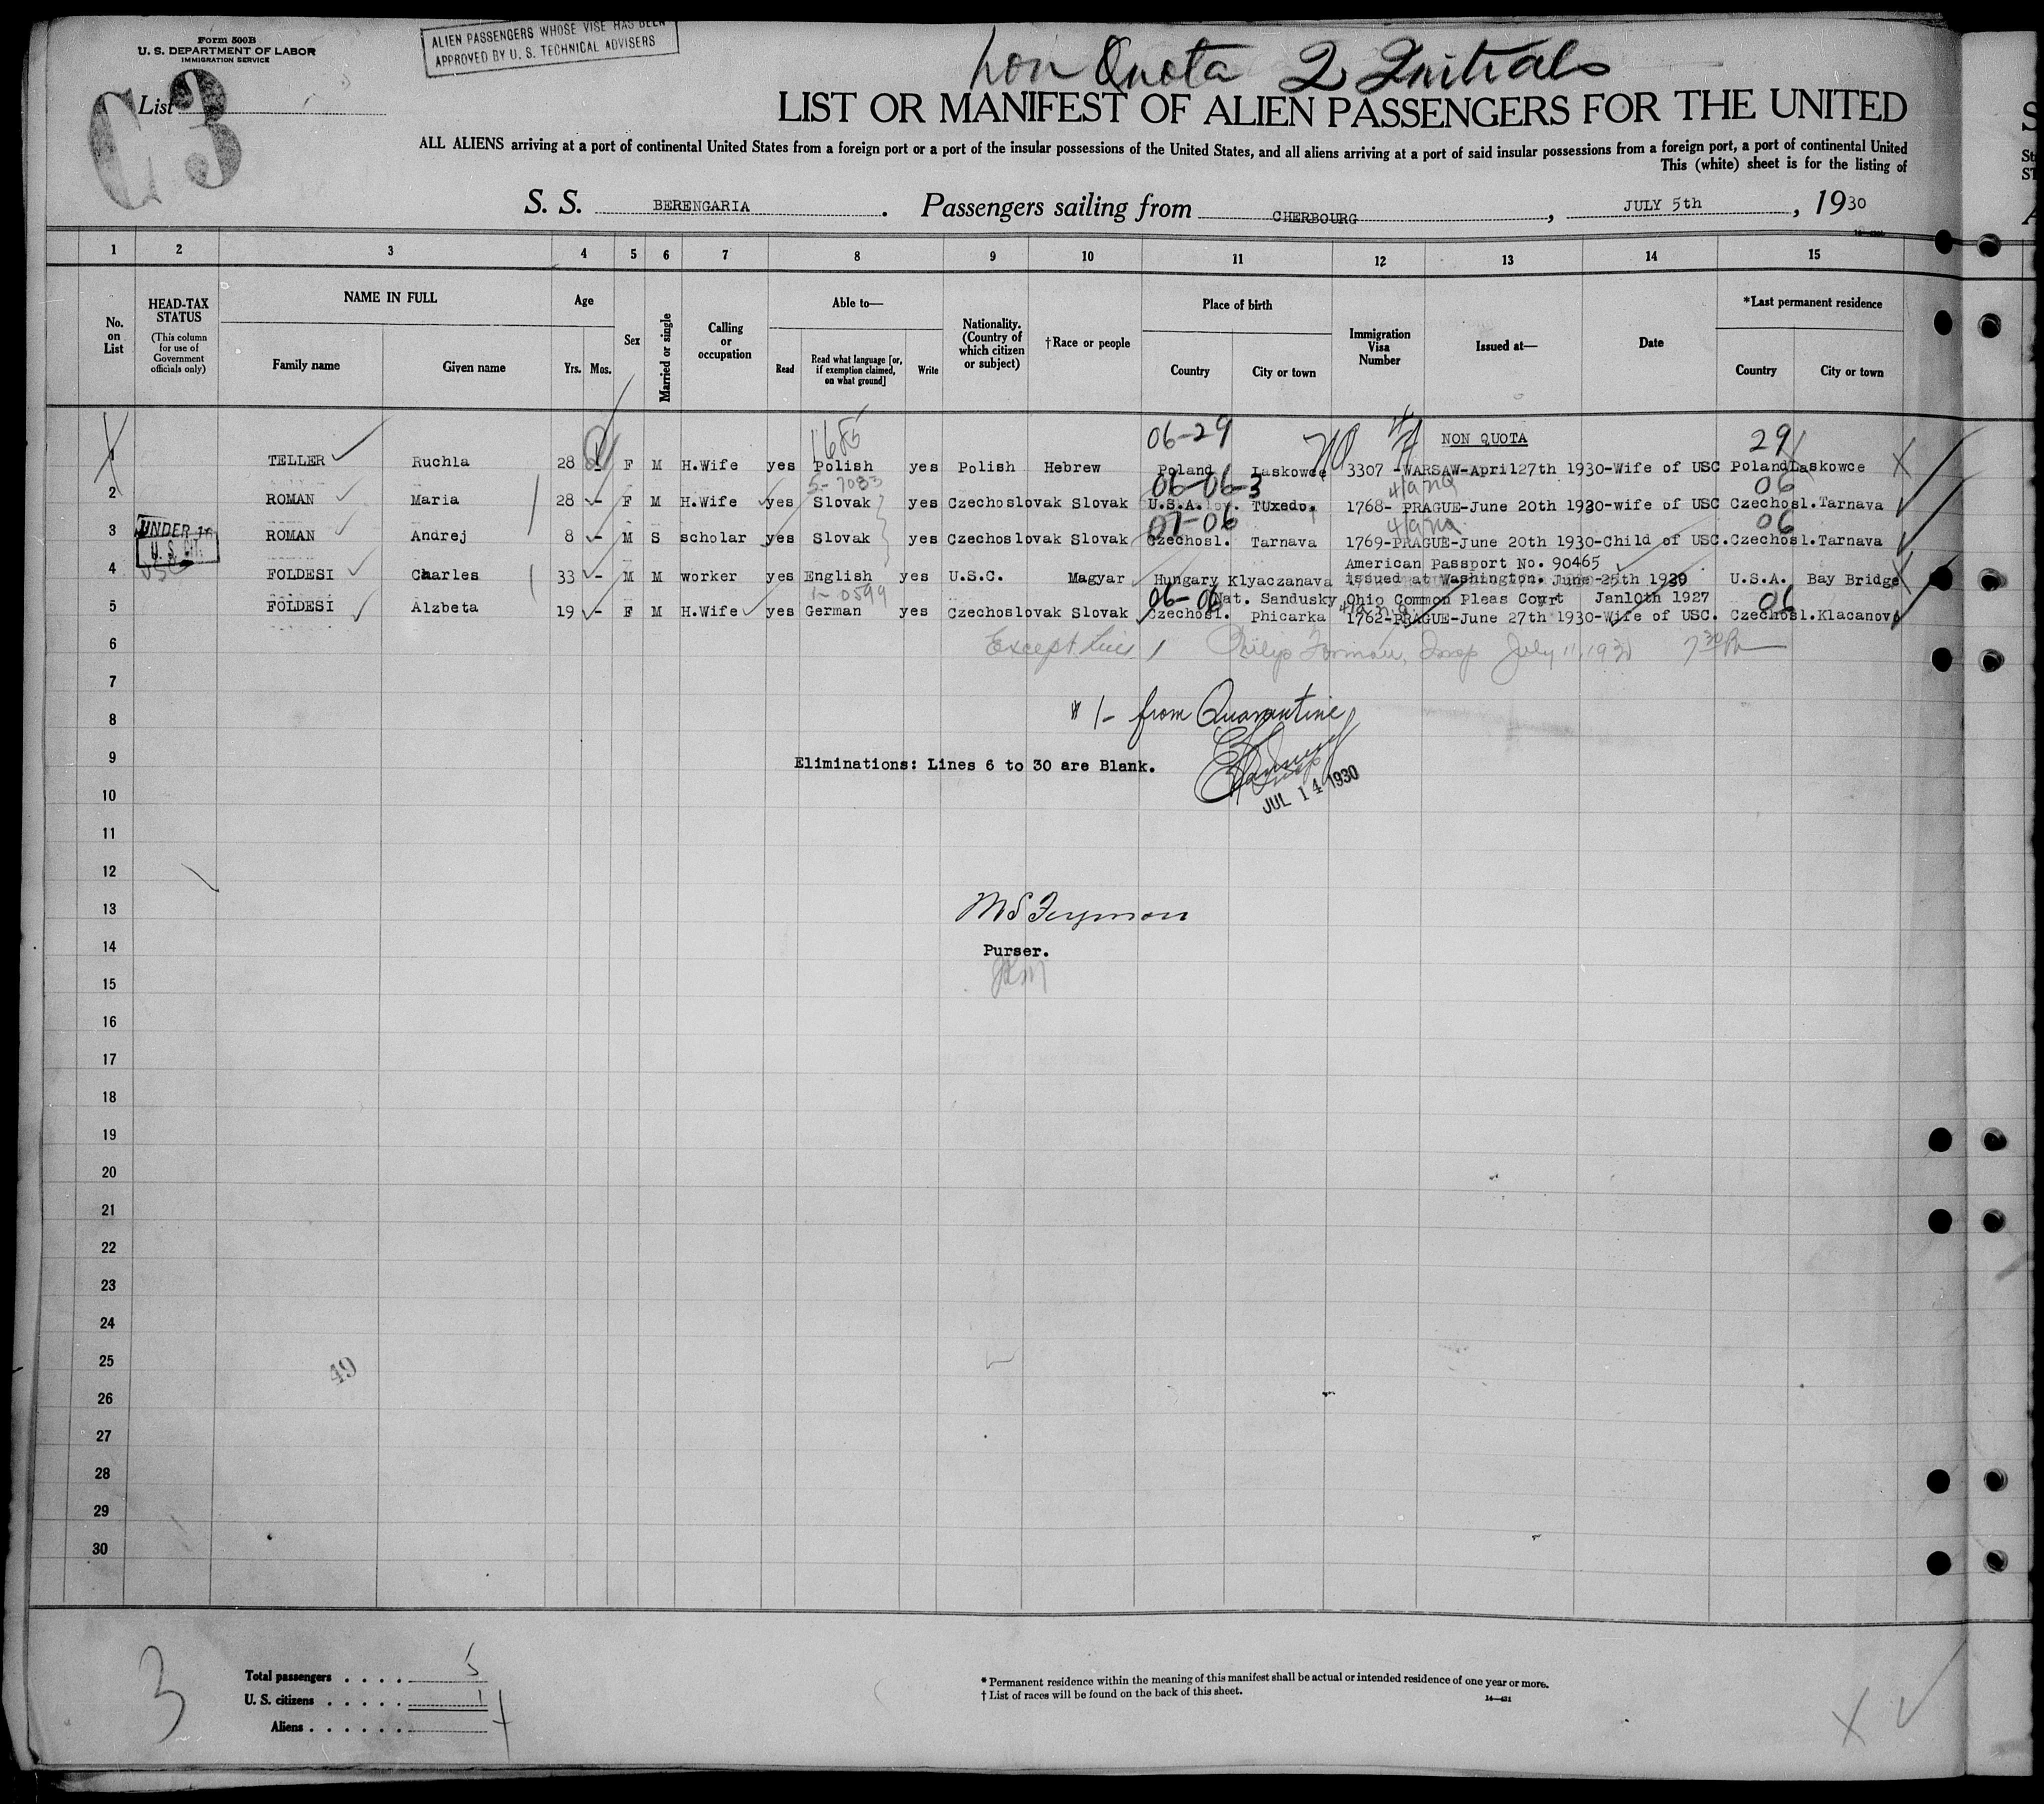 Form 500B
U. S. DEPARTMENT OF LABOR
IMMIGRATION SERVICE
ALIEN PASSENGERS WHOSE VISE HAS BEEN
APPROVED BY U. S. TECHNICAL ADVISERS
Non Quota 2 Initials
List
3
LIST OR MANIFEST OF ALIEN PASSENGERS FOR THE UNITED
ALL ALIENS arriving at a port of continental United States from a foreign port or a port of the insular possessions of the United States, and all aliens arriving at a port of said insular possessions from a foreign port, a port of continental United
This (white) sheet is for the listing of
S. S. BERENGARIA. Passengers sailing from CHERBOURG, JULY 5th, 1930
1 2 3 4 5 6 7 8 9 10 11 12 13 14 15
No. on List
HEAD-TAX STATUS
(This column for use of Government officials only)
NAME IN FULL
Family name
Given name
Age
Yrs. Mos.
Sex
Married or single
Calling or occupation
Able to—
Read
Read what language [or, if exemption claimed, on what ground]
Write
Nationality. (Country of which citizen or subject)
†Race or people
Place of birth
Country
City or town
Immigration Visa Number
Issued at—
Date
*Last permanent residence
Country
City or town
06-29 NON QUOTA 29
1 TELLER Ruchla 28 - F M H.Wife yes Polish yes Polish Hebrew Poland Laskowce 3307 -WARSAW-April27th 1930-Wife of USC Poland Laskowce
5-7083 06-06-3 06
2 ROMAN Maria 28 - F M H.Wife yes Slovak yes Czechoslovak Slovak U.S.A. TUxedo. 1768- PRAGUE-June 20th 1930-wife of USC Czechosl.Tarnava
07-06 06
3 UNDER 16 U. S. CIT. ROMAN Andrej 8 - M S scholar yes Slovak yes Czechoslovak Slovak Czechosl. Tarnava 1769-PRAGUE-June 20th 1930-Child of USC.Czechosl.Tarnava
American Passport No. 90465
4 USC FOLDESI Charles 33 - M M worker yes English yes U.S.C. Magyar Hungary Klyaczanava issued at Washington. June-25th 1930 U.S.A. Bay Bridge
1-0599 06-06 Nat. Sandusky Ohio Common Pleas Court Jan10th 1927 06
5 FOLDESI Alzbeta 19 - F M H.Wife yes German yes Czechoslovak Slovak Czechosl. Phicarka 1762-PRAGUE-June 27th 1930-Wife of USC. Czechosl.Klacanovo
6 Except Line 1 Philip Forman, Insp July 11, 1930 7 30 Pm
7
8 # 1- from Quarantine
9 Eliminations: Lines 6 to 30 are Blank.
10 JUL 14 1930
11
12
13
14 Purser.
15
16
17
18
19
20
21
22
23
24
25
49
26
27
28
29
30
3
Total passengers . . . . 5
U. S. citizens . . . . . 1
Aliens . . . . . . 4
* Permanent residence within the meaning of this manifest shall be actual or intended residence of one year or more.
† List of races will be found on the back of this sheet.
14—421